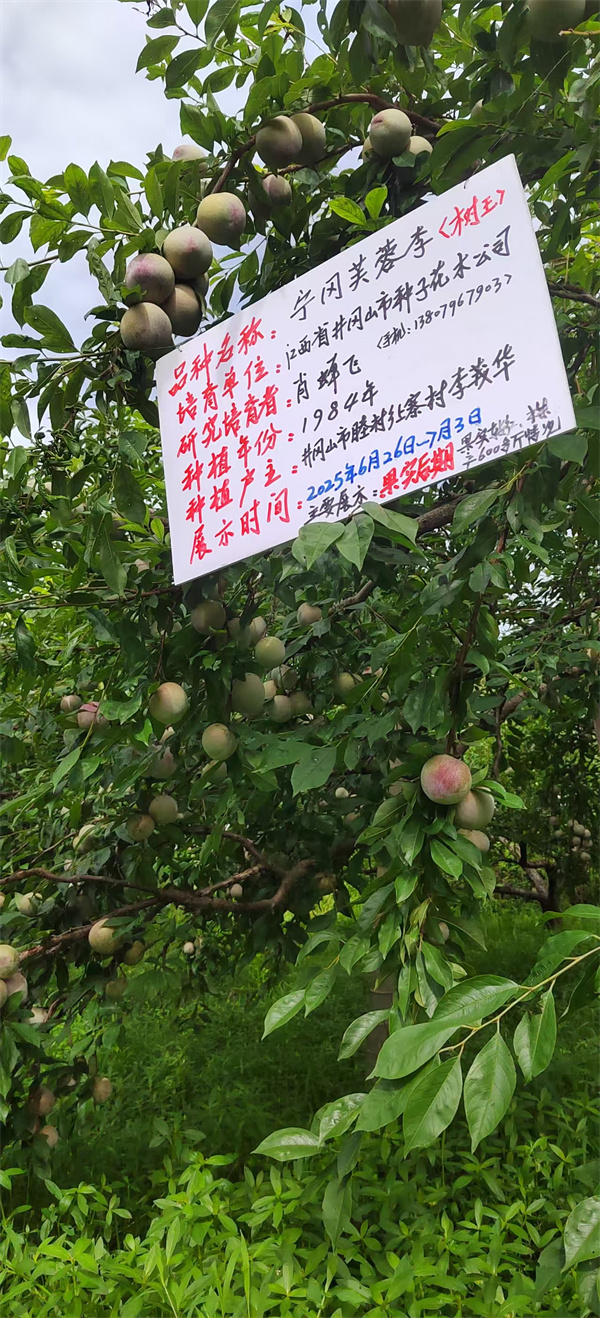 品种名称：宁冈芙蓉李〈树王〉
培育单位：江西省井冈山市种子花木公司
研究培育者：肖辉飞 〈手机：13807967903〉
种植年份：1984年
种植户主：井冈山市睦村红寨村李茂华
展示时间：2025年6月26日—7月3日
主要展示：果实后期